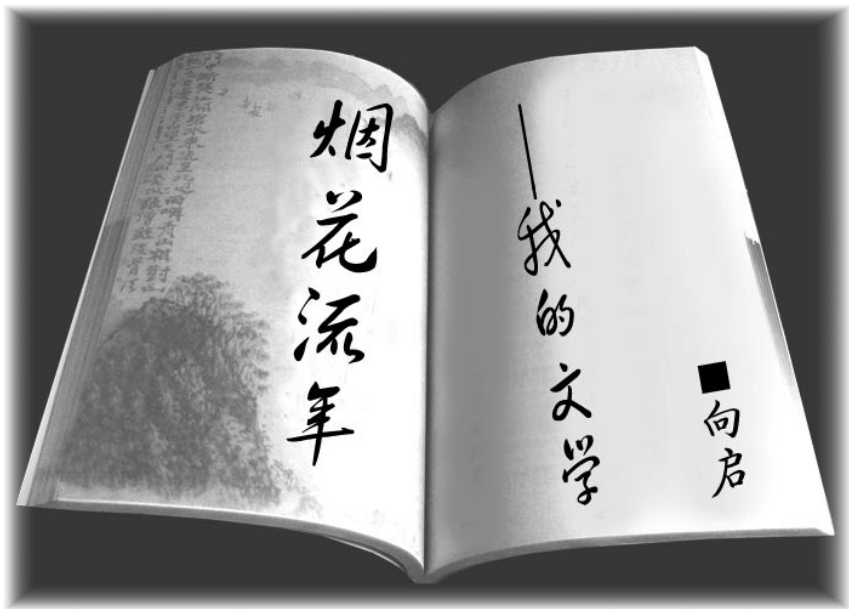 烟花流年
——我的文学
■向启